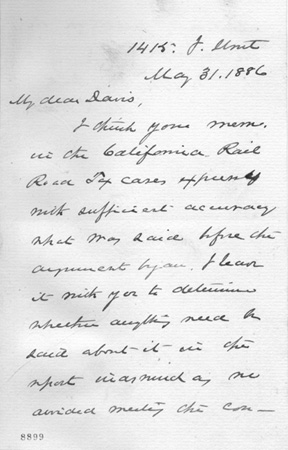 1415. I. Street
May 31. 1886
My dear Davis,
I think your mem.
in the California Rail
Road Tax cases expresses
with sufficient accuracy
what was said before the
argument began. I leave
it with you to determine
whether anything need be
said about it in the
report inasmuch as we
avoided meeting the con—
8899